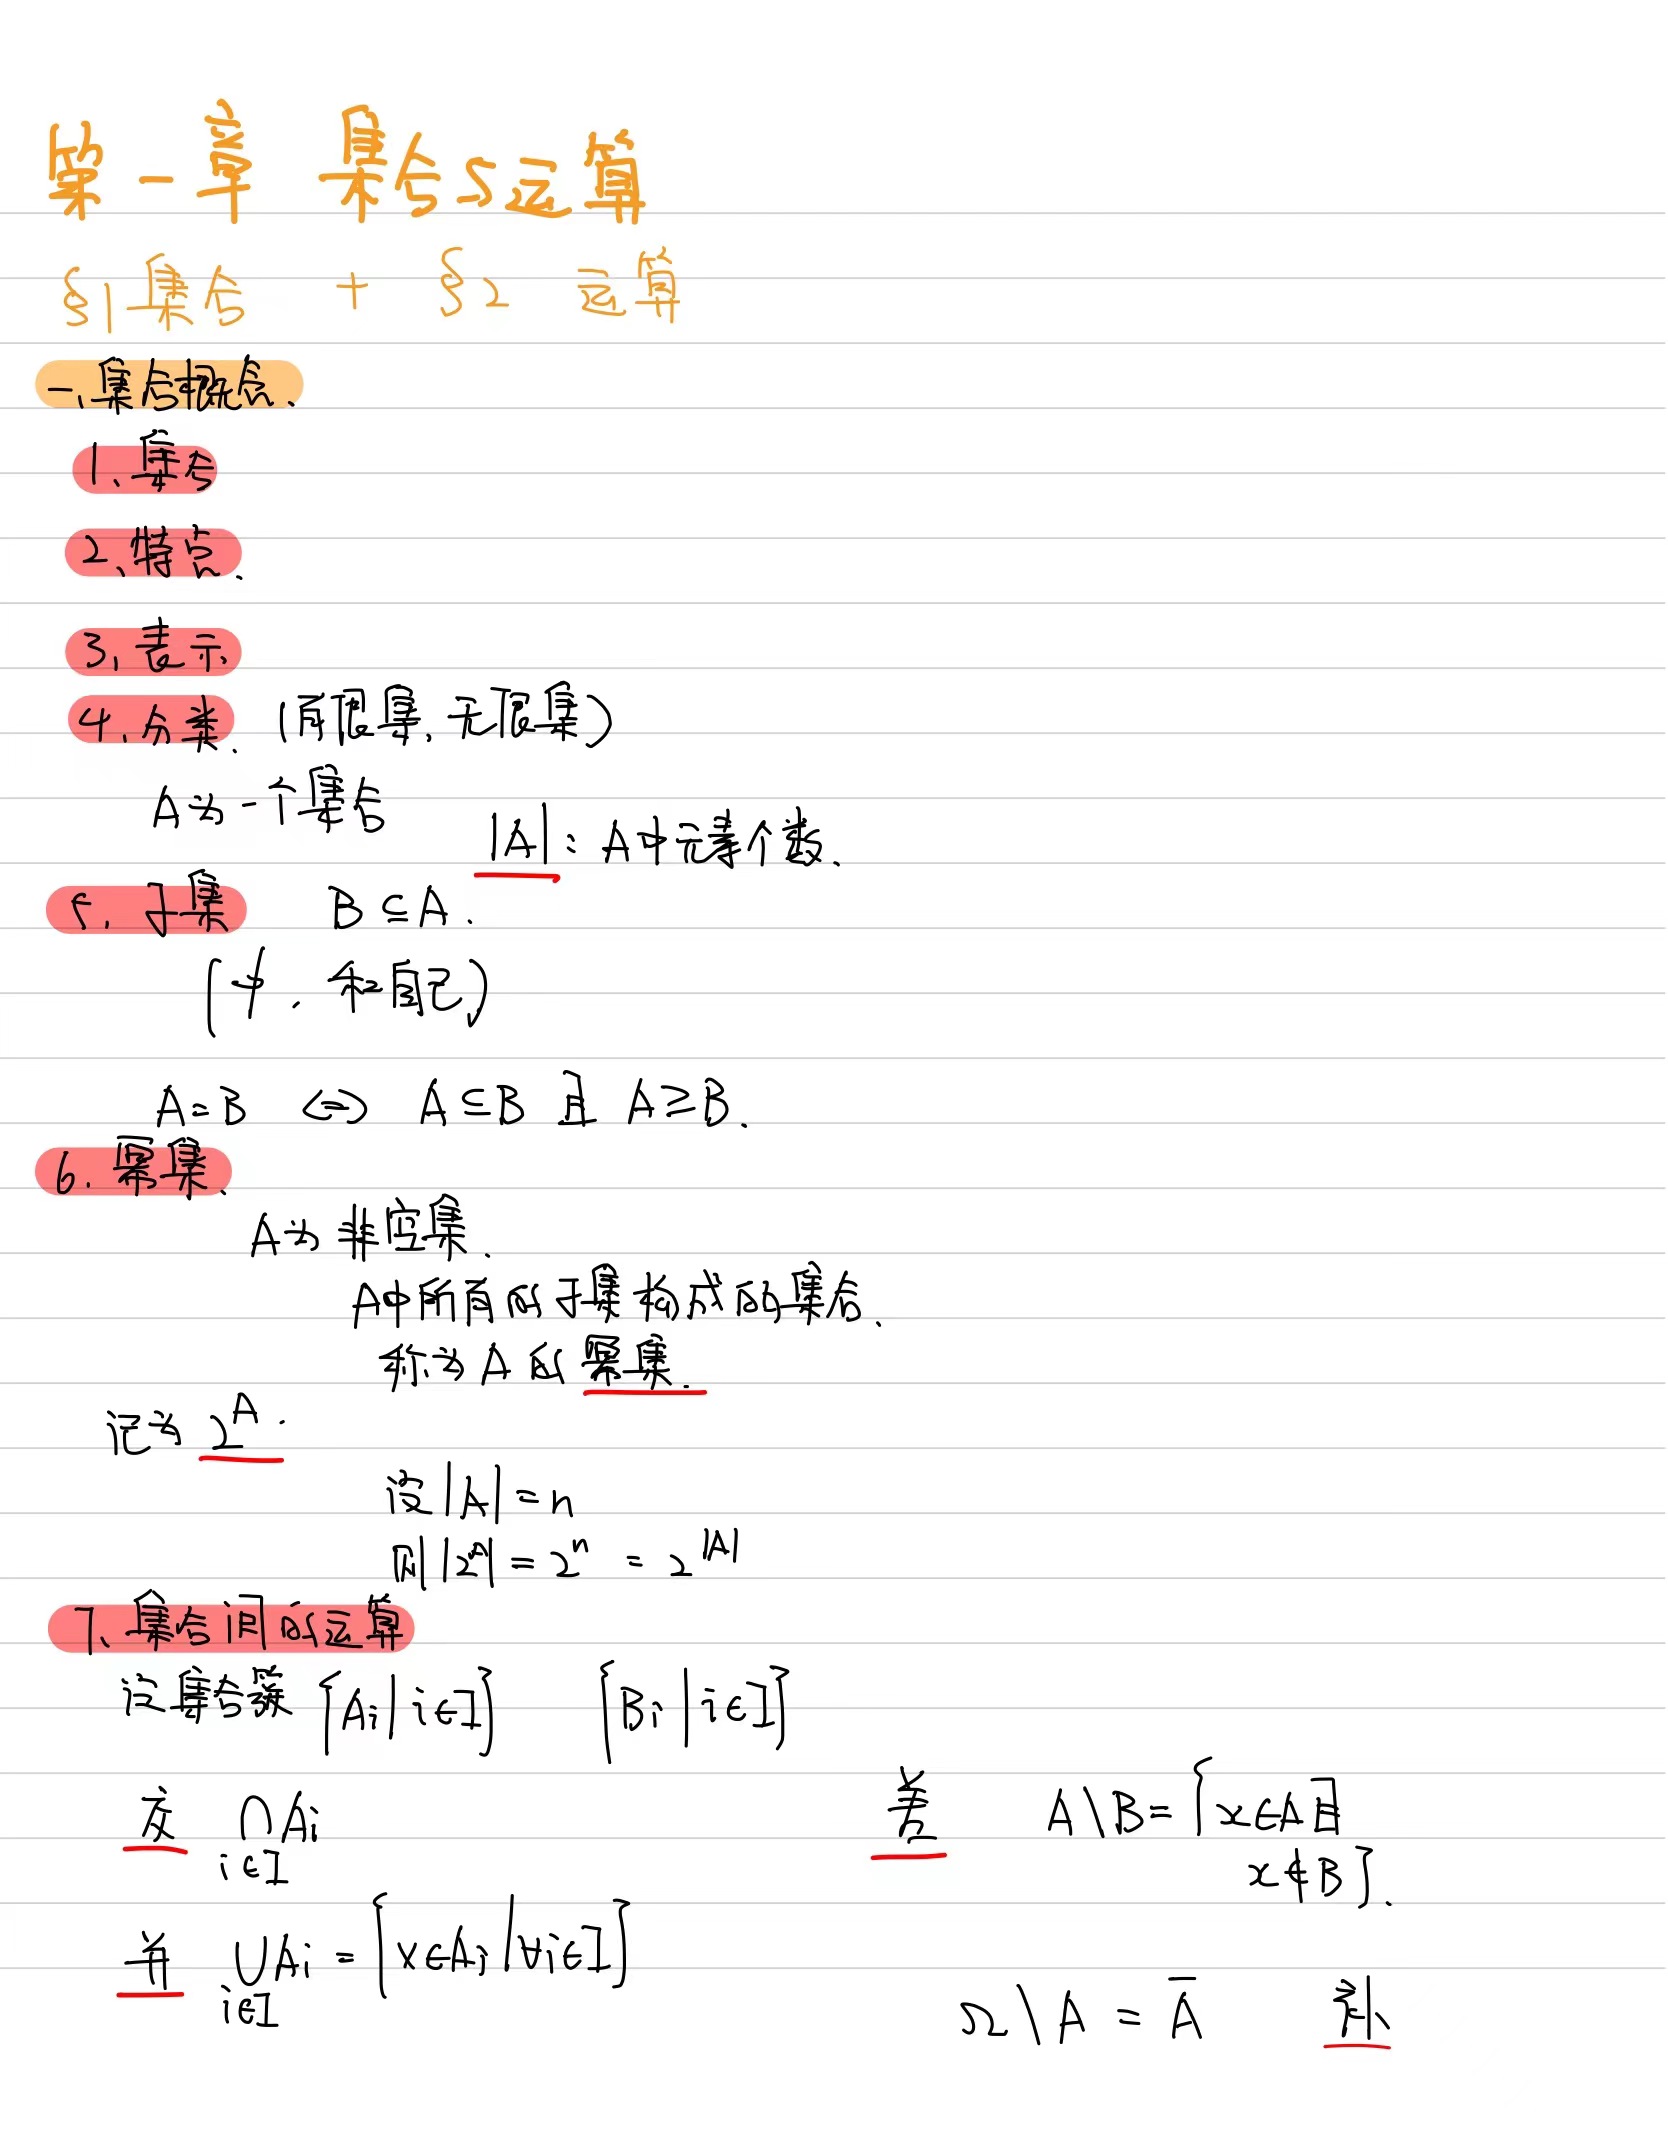 第一章 集合与运算
§1集合 + §2 运算
一、集合概念.
1、集合
2、特点.
3、表示
4、分类. (有限集,无限集)
A为一个集合
|A|: A中元素个数.
5、子集 B⊆A.
(∅. 和自己)
A=B ⇔ A⊆B 且 A≥B.
6. 幂集.
A为非空集.
A中所有的子集构成的集合.
称为A的幂集.
记为 2^A.
设|A|=n
则|2^A|=2^n = 2^|A|
7、集合间的运算
设集合簇 {Ai|i∈I} {Bi|i∈I}
交 ∩Ai
i∈I
并 ∪Ai = {x∈Ai|∀i∈I}
i∈I
差 A\B={x∈A且
x∉B}.
Ω\A = Ā 补